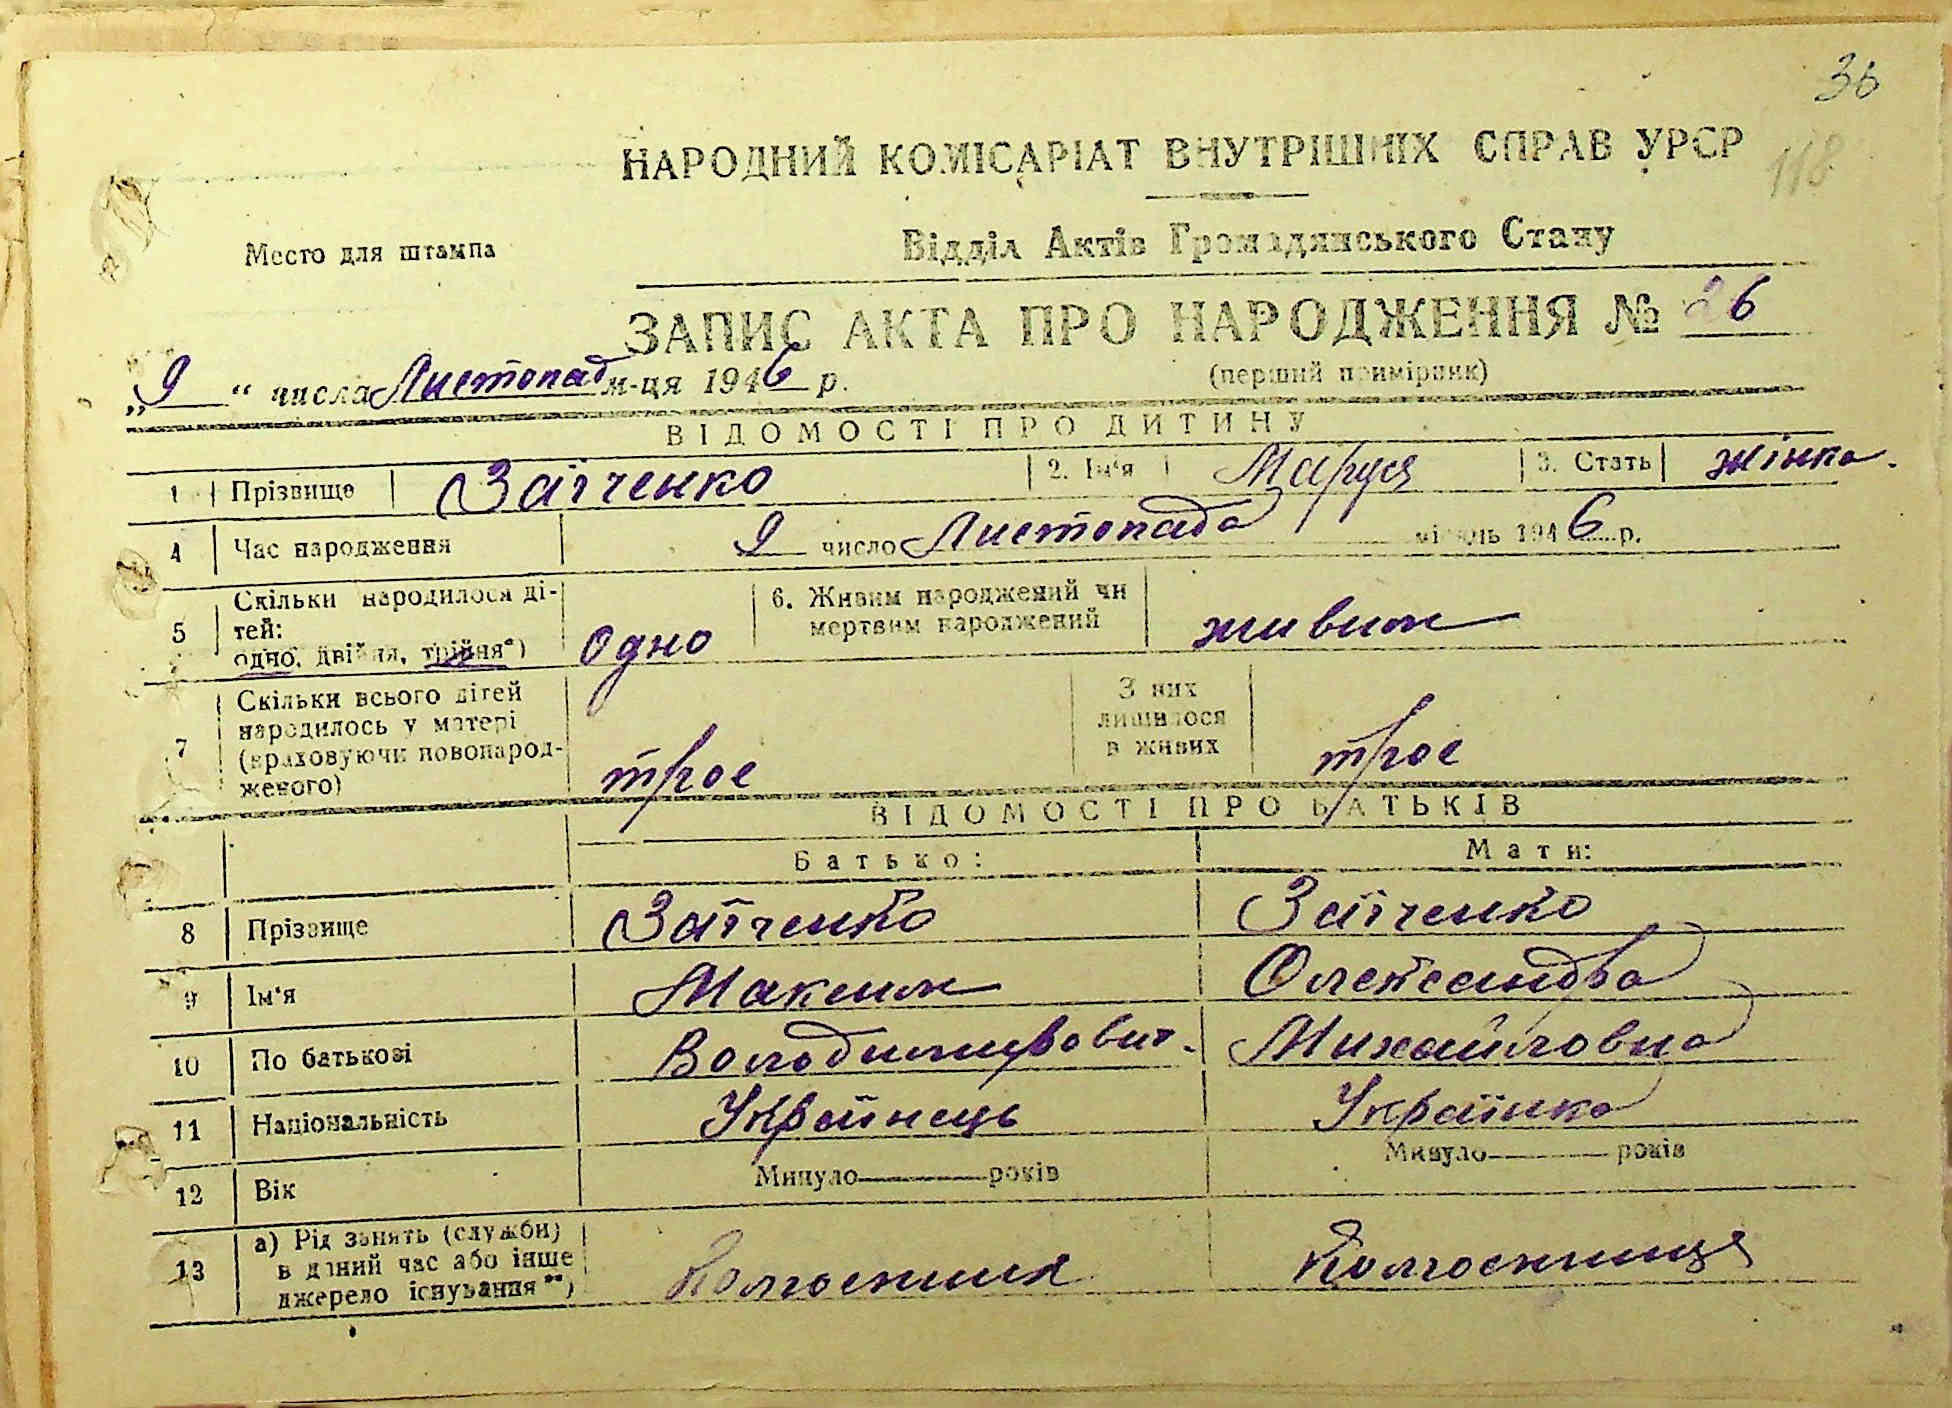 36
НАРОДНИЙ КОМІСАРІАТ ВНУТРІШНІХ СПРАВ УРСР
118
Место для штампа
Відділ Актів Громадянського Стану
ЗАПИС АКТА ПРО НАРОДЖЕННЯ № 26
„9“ числа Листопад м-ця 1946 р.
(перший примірник)
ВІДОМОСТІ ПРО ДИТИНУ
1 Прізвище Заїченко 2. Ім‘я Маруся 3. Стать жінка.
4 Час народження 9 число Листопада місяць 1946 р.
5 Скільки народилося ді-
тей:
одно, двійня, трійня*) одно
6. Живим народжений чи
мертвим народжений живим
7 Скільки всього дітей
народилось у матері
(враховуючи новонарод-
женого) трое
З них
лишилося
в живих трое
ВІДОМОСТІ ПРО БАТЬКІВ
Батько: Мати:
8 Прізвище Заїченко Заїченко
9 Ім‘я Максим Олександра
10 По батькові Володимирович. Михайловна
11 Національність Українець Українка
12 Вік Минуло років Минуло років
13 а) Рід занять (служби)
в даний час або інше
джерело існування**) Колгоспник Колгоспниця